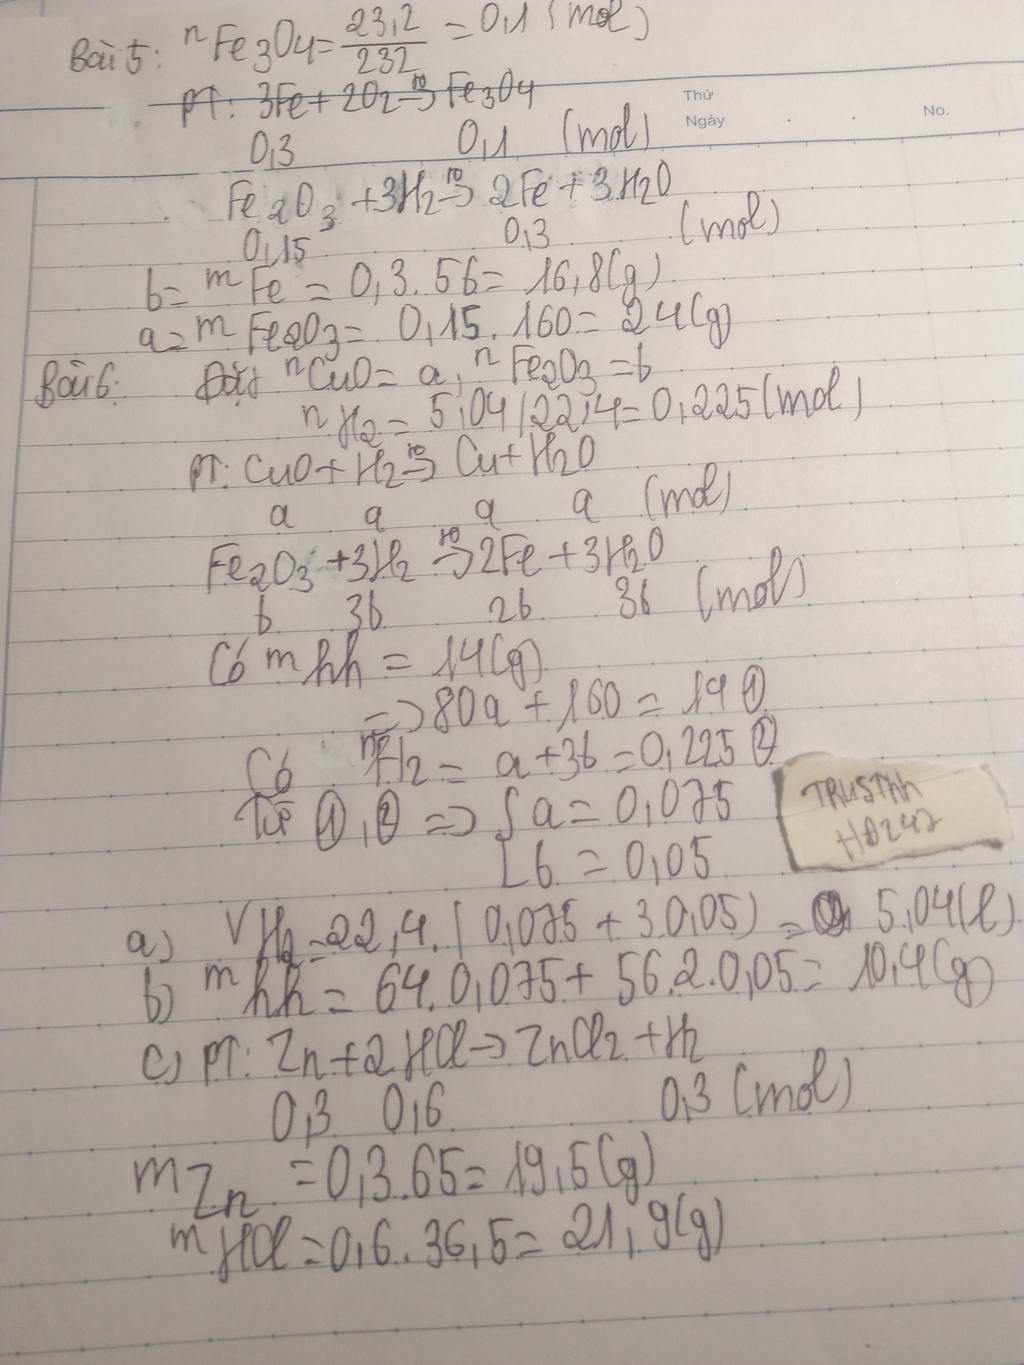 Bài 5: nFe3O4 = 23,2/232 = 0,1 (mol)
PT: 3Fe + 2O2 -to-> Fe3O4
Thứ
Ngày
No.
0,3 0,1 (mol)
Fe2O3 + 3H2 -to-> 2Fe + 3H2O
0,15 0,3 (mol)
b = mFe = 0,3.56 = 16,8(g)
a = mFe2O3 = 0,15.160 = 24(g)
Bài 6: Đặt nCuO = a, nFe2O3 = b
nH2 = 5,04/22,4 = 0,225 (mol)
PT: CuO + H2 -to-> Cu + H2O
a a a a (mol)
Fe2O3 + 3H2 -to-> 2Fe + 3H2O
b 3b 2b 3b (mol)
Có mhh = 14(g)
=> 80a + 160 = 14 ①
Có nH2 = a + 3b = 0,225 ②
Từ ①, ② => { a = 0,075
b = 0,05
TRUSTHH
HĐ247
a) VH2 = 22,4.(0,075 + 3.0,05) = 5,04(l)
b) mhh = 64.0,075 + 56.2.0,05 = 10,4(g)
c) PT: Zn + 2HCl -> ZnCl2 + H2
0,3 0,6 0,3 (mol)
mZn = 0,3.65 = 19,5(g)
mHCl = 0,6.36,5 = 21,9(g)